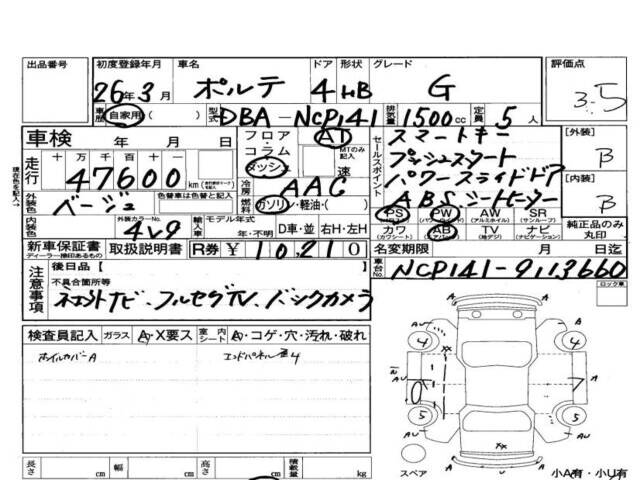 出品番号 初度登録年月 車名 ドア 形状 グレード 評価点
26年3月 ポルテ 4 HB G 3.5
車歴 自家用( ) 型式 DBA-NCP141 排気量 1500cc 定員 5人
車検 年 月 日 フロア・コラム・ダッシュ AT MTのみ記入 速
セールスポイント スマートキー
プッシュスタート
パワースライドドア
ABS シートヒーター
[外装] B
[内装] B
走行 十万千百十一
47600 km
冷房 AAC
外装色 ベージュ 色替車は色替と記入 燃料 ガソリン・軽油・( )
内装色 外装カラーNo. 4V9 輸入車 モデル年式 年・不明 D車・並 右H・左H
PS PW AW (アルミホイル) SR (サンルーフ)
カワ (カワシート) AB TV (地デジ) ナビ (ナビゲーション)
純正品のみ丸印
新車保証書 取扱説明書 R券 ¥10,210
ディーラー捺印あるもの
名変期限 月 日迄
注意事項 後日品[ ]
不具合箇所等
車台No. NCP141-9113660
ロック車
ナビ、フルセグTV、バックカメラ
検査員記入 ガラス A・X要ス 室内シート A・コゲ・穴・汚れ・破れ
ホイルカバーA
長さ cm 幅 cm 高さ cm 積載量 kg
スペア 小A有・小U有
現在色を記入